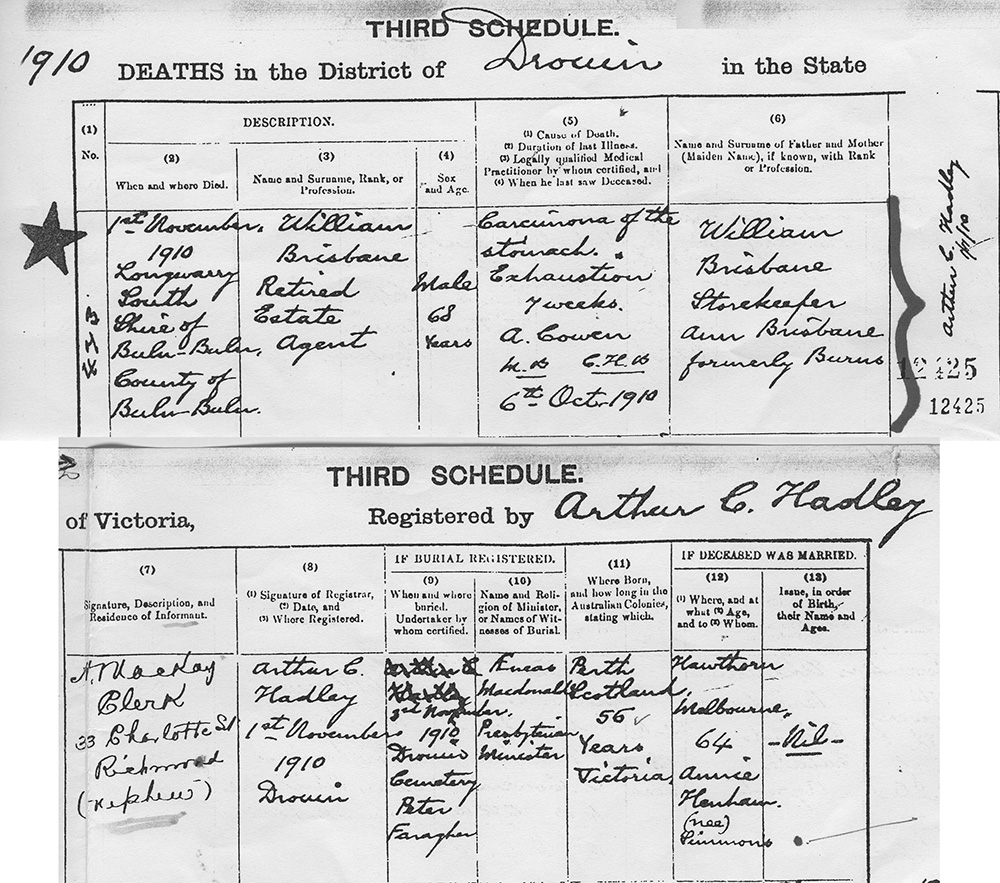 THIRD SCHEDULE.
1910 DEATHS in the District of Drouin in the State
(1)
No.
DESCRIPTION.
(2)
When and where Died.
(3)
Name and Surname, Rank, or
Profession.
(4)
Sex
and Age.
(5)
(1) Cause of Death.
(2) Duration of last Illness.
(3) Legally qualified Medical
Practitioner by whom certified, and
(4) When he last saw Deceased.
(6)
Name and Surname of Father and Mother
(Maiden Name), if known, with Rank
or Profession.
1st November,
1910
Longwarry
South
Shire of
Buln-Buln,
County of
Buln-Buln.
William
Brisbane
Retired
Estate
Agent
Male
68
Years
Carcinona of the
stomach.
Exhaustion
7 weeks.
A. Cowen
M.B C.H.B
6th Oct. 1910
William
Brisbane
Storekeeper
Ann Brisbane
formerly Burns
Arthur C. Hadley
12425
12425
THIRD SCHEDULE.
of Victoria, Registered by Arthur C. Hadley
(7)
Signature, Description, and
Residence of Informant.
(8)
(1) Signature of Registrar,
(2) Date, and
(3) Where Registered.
IF BURIAL REGISTERED.
(9)
When and where
buried.
Undertaker by
whom certified.
(10)
Name and Reli-
gion of Minister,
or Names of Wit-
nesses of Burial.
(11)
Where Born,
and how long in the
Australian Colonies,
stating which.
IF DECEASED WAS MARRIED.
(12)
(1) Where, and at
what (2) Age,
and to (3) Whom.
(13)
Issue, in order
of Birth,
their Name and
Ages.
A. Mackay
Clerk
33 Charlotte St
Richmond
(Nephew)
Arthur C.
Hadley
1st November
1910
Drouin
3rd November.
1910
Drouin
Cemetery
Peter
Faragher
Eneas
Macdonald
Presbyterian
Minister
Perth
Scotland,
56
Years
Victoria,
Hawthorn
Melbourne,
64
Annie
Henham.
(nee)
Simmons
-Nil-